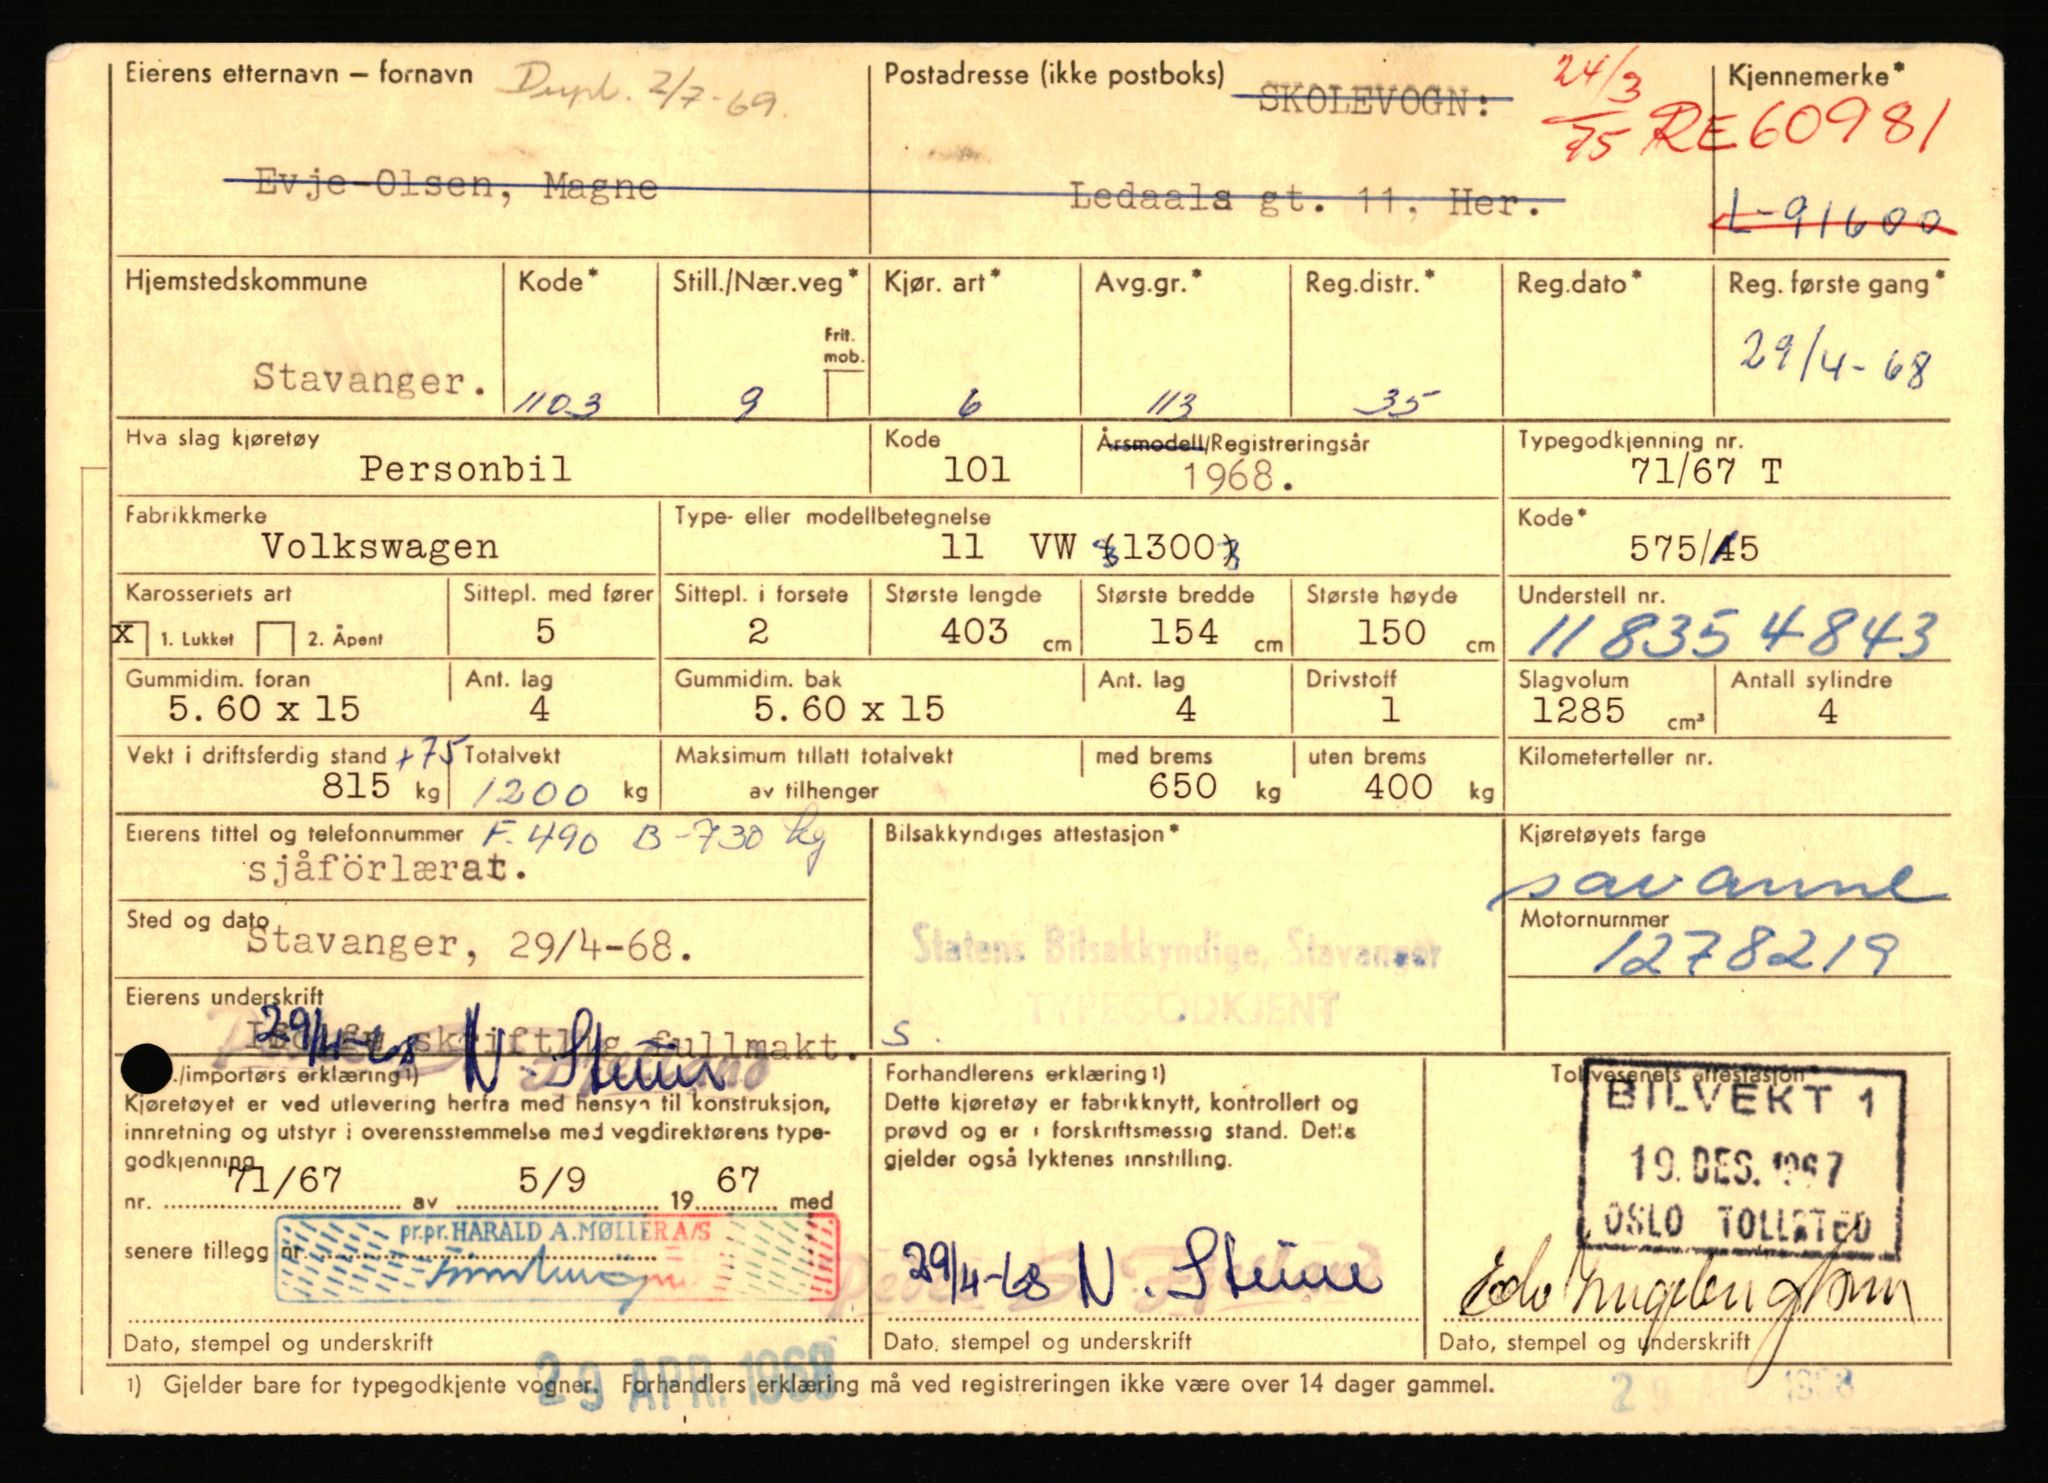 Eierens etternavn – fornavn Dupl. 2/7-69. Postadresse (ikke postboks) SKOLEVOGN: 24/3 75 Kjennemerke*
RE60981
Evje-Olsen, Magne Ledaals gt. 11, Her. L-91600
Hjemstedskommune Kode* Still./Nær.veg* Kjør. art* Avg.gr.* Reg.distr.* Reg.dato* Reg. første gang*
Frit. mob.
Stavanger. 1103 9 6 113 35 29/4-68
Hva slag kjøretøy Kode Årsmodell/Registreringsår Typegodkjenning nr.
Personbil 101 1968. 71/67 T
Fabrikkmerke Type- eller modellbetegnelse Kode*
Volkswagen 11 VW (1300) 575/15
Karosseriets art Sittepl. med fører Sittepl. i forsete Største lengde Største bredde Største høyde Understell nr.
x 1. Lukket 2. Åpent 5 2 403 cm 154 cm 150 cm 118354843
Gummidim. foran Ant. lag Gummidim. bak Ant. lag Drivstoff Slagvolum Antall sylindre
5.60 x 15 4 5.60 x 15 4 1 1285 cm³ 4
Vekt i driftsferdig stand +75 Totalvekt Maksimum tillatt totalvekt med brems uten brems Kilometerteller nr.
815 kg 1200 kg av tilhenger 650 kg 400 kg
Eierens tittel og telefonnummer F. 490 B-730 kg Bilsakkyndiges attestasjon* Kjøretøyets farge
sjåförlærar. savanne
Sted og dato Motornummer
Stavanger, 29/4-68. Statens Bilsakkyndige, Stavanger 1278219
TYPEGODKJENT
Eierens underskrift
skriftlig fullmakt. S.
29/4-68 N. Steine
./importørs erklæring 1) Forhandlerens erklæring 1) Tollvesenets attestasjon*
Kjøretøyet er ved utlevering herfra med hensyn til konstruksjon, Dette kjøretøy er fabrikknytt, kontrollert og BILVEKT 1
innretning og utstyr i overensstemmelse med vegdirektørens type- prøvd og er i forskriftsmessig stand. Dette
godkjenning gjelder også lyktenes innstilling. 19. DES. 1967
nr. 71/67 av 5/9 19 67 med
OSLO TOLLSTED
senere tillegg nr. pr.pr. HARALD A. MØLLER A/S
29/4-68 N. Steine
Dato, stempel og underskrift Dato, stempel og underskrift Dato, stempel og underskrift
29 APR. 1968
1) Gjelder bare for typegodkjente vogner. Forhandlers erklæring må ved registreringen ikke være over 14 dager gammel.
29 APR 1968